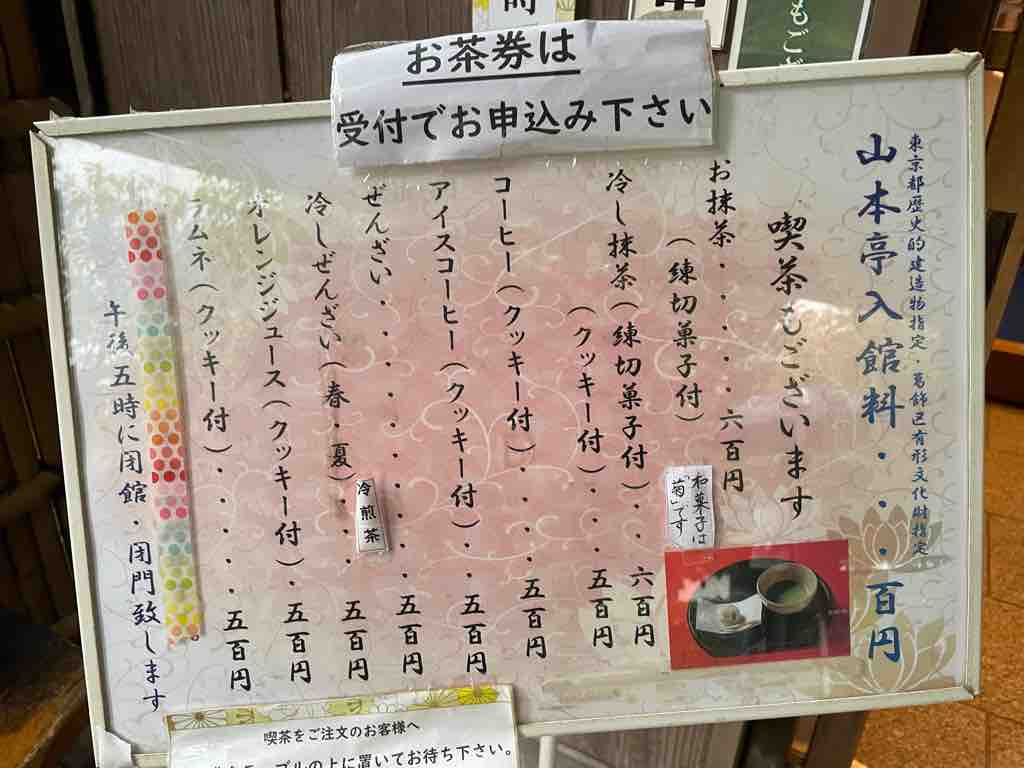 お茶券は
受付でお申込み下さい
東京都歴史的建造物指定・葛飾区有形文化財指定
山本亭入館料・・・百円
喫茶もございます
お抹茶・・・・・六百円
（練切菓子付）
和菓子は
「菊」です
冷し抹茶（練切菓子付）・・六百円
（クッキー付）・・・五百円
コーヒー（クッキー付）・・・・五百円
アイスコーヒー（クッキー付）・・・五百円
ぜんざい・・・・・・・・・五百円
冷煎茶
冷しぜんざい（春・夏）・・・五百円
オレンジジュース（クッキー付）・・五百円
ラムネ（クッキー付）・・・・・五百円
午後五時に閉館・閉門致します
喫茶をご注文のお客様へ
ブルの上に置いてお待ち下さい。
もご